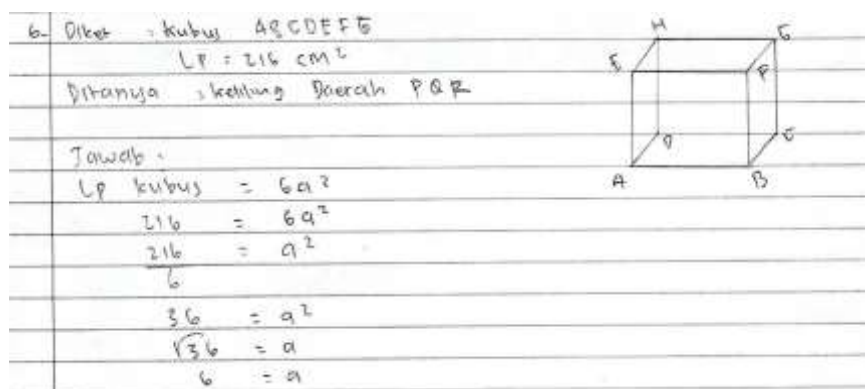 6. Diket : kubus ABCDEFG
LP = 216 cm²
Ditanya : keliling Daerah PQR
Jawab :
Lp kubus = 6a²
216 = 6a²
216/6 = a²
36 = a²
√36 = a
6 = a
H G
E F
D C
A B